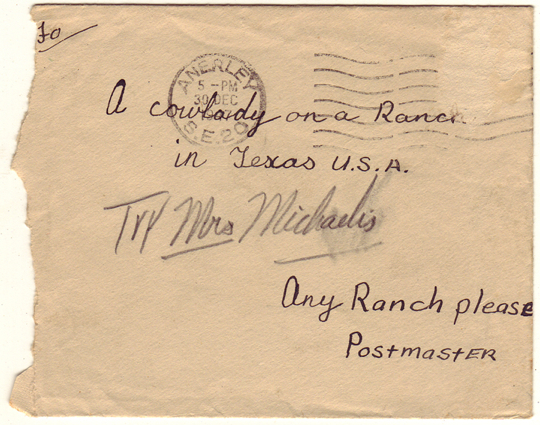 To
ANERLEY
5 - PM
30 DEC
S.E.20
A cowlady on a Ranch
in Texas U.S.A.
Try Mrs Michaelis
Any Ranch please
Postmaster